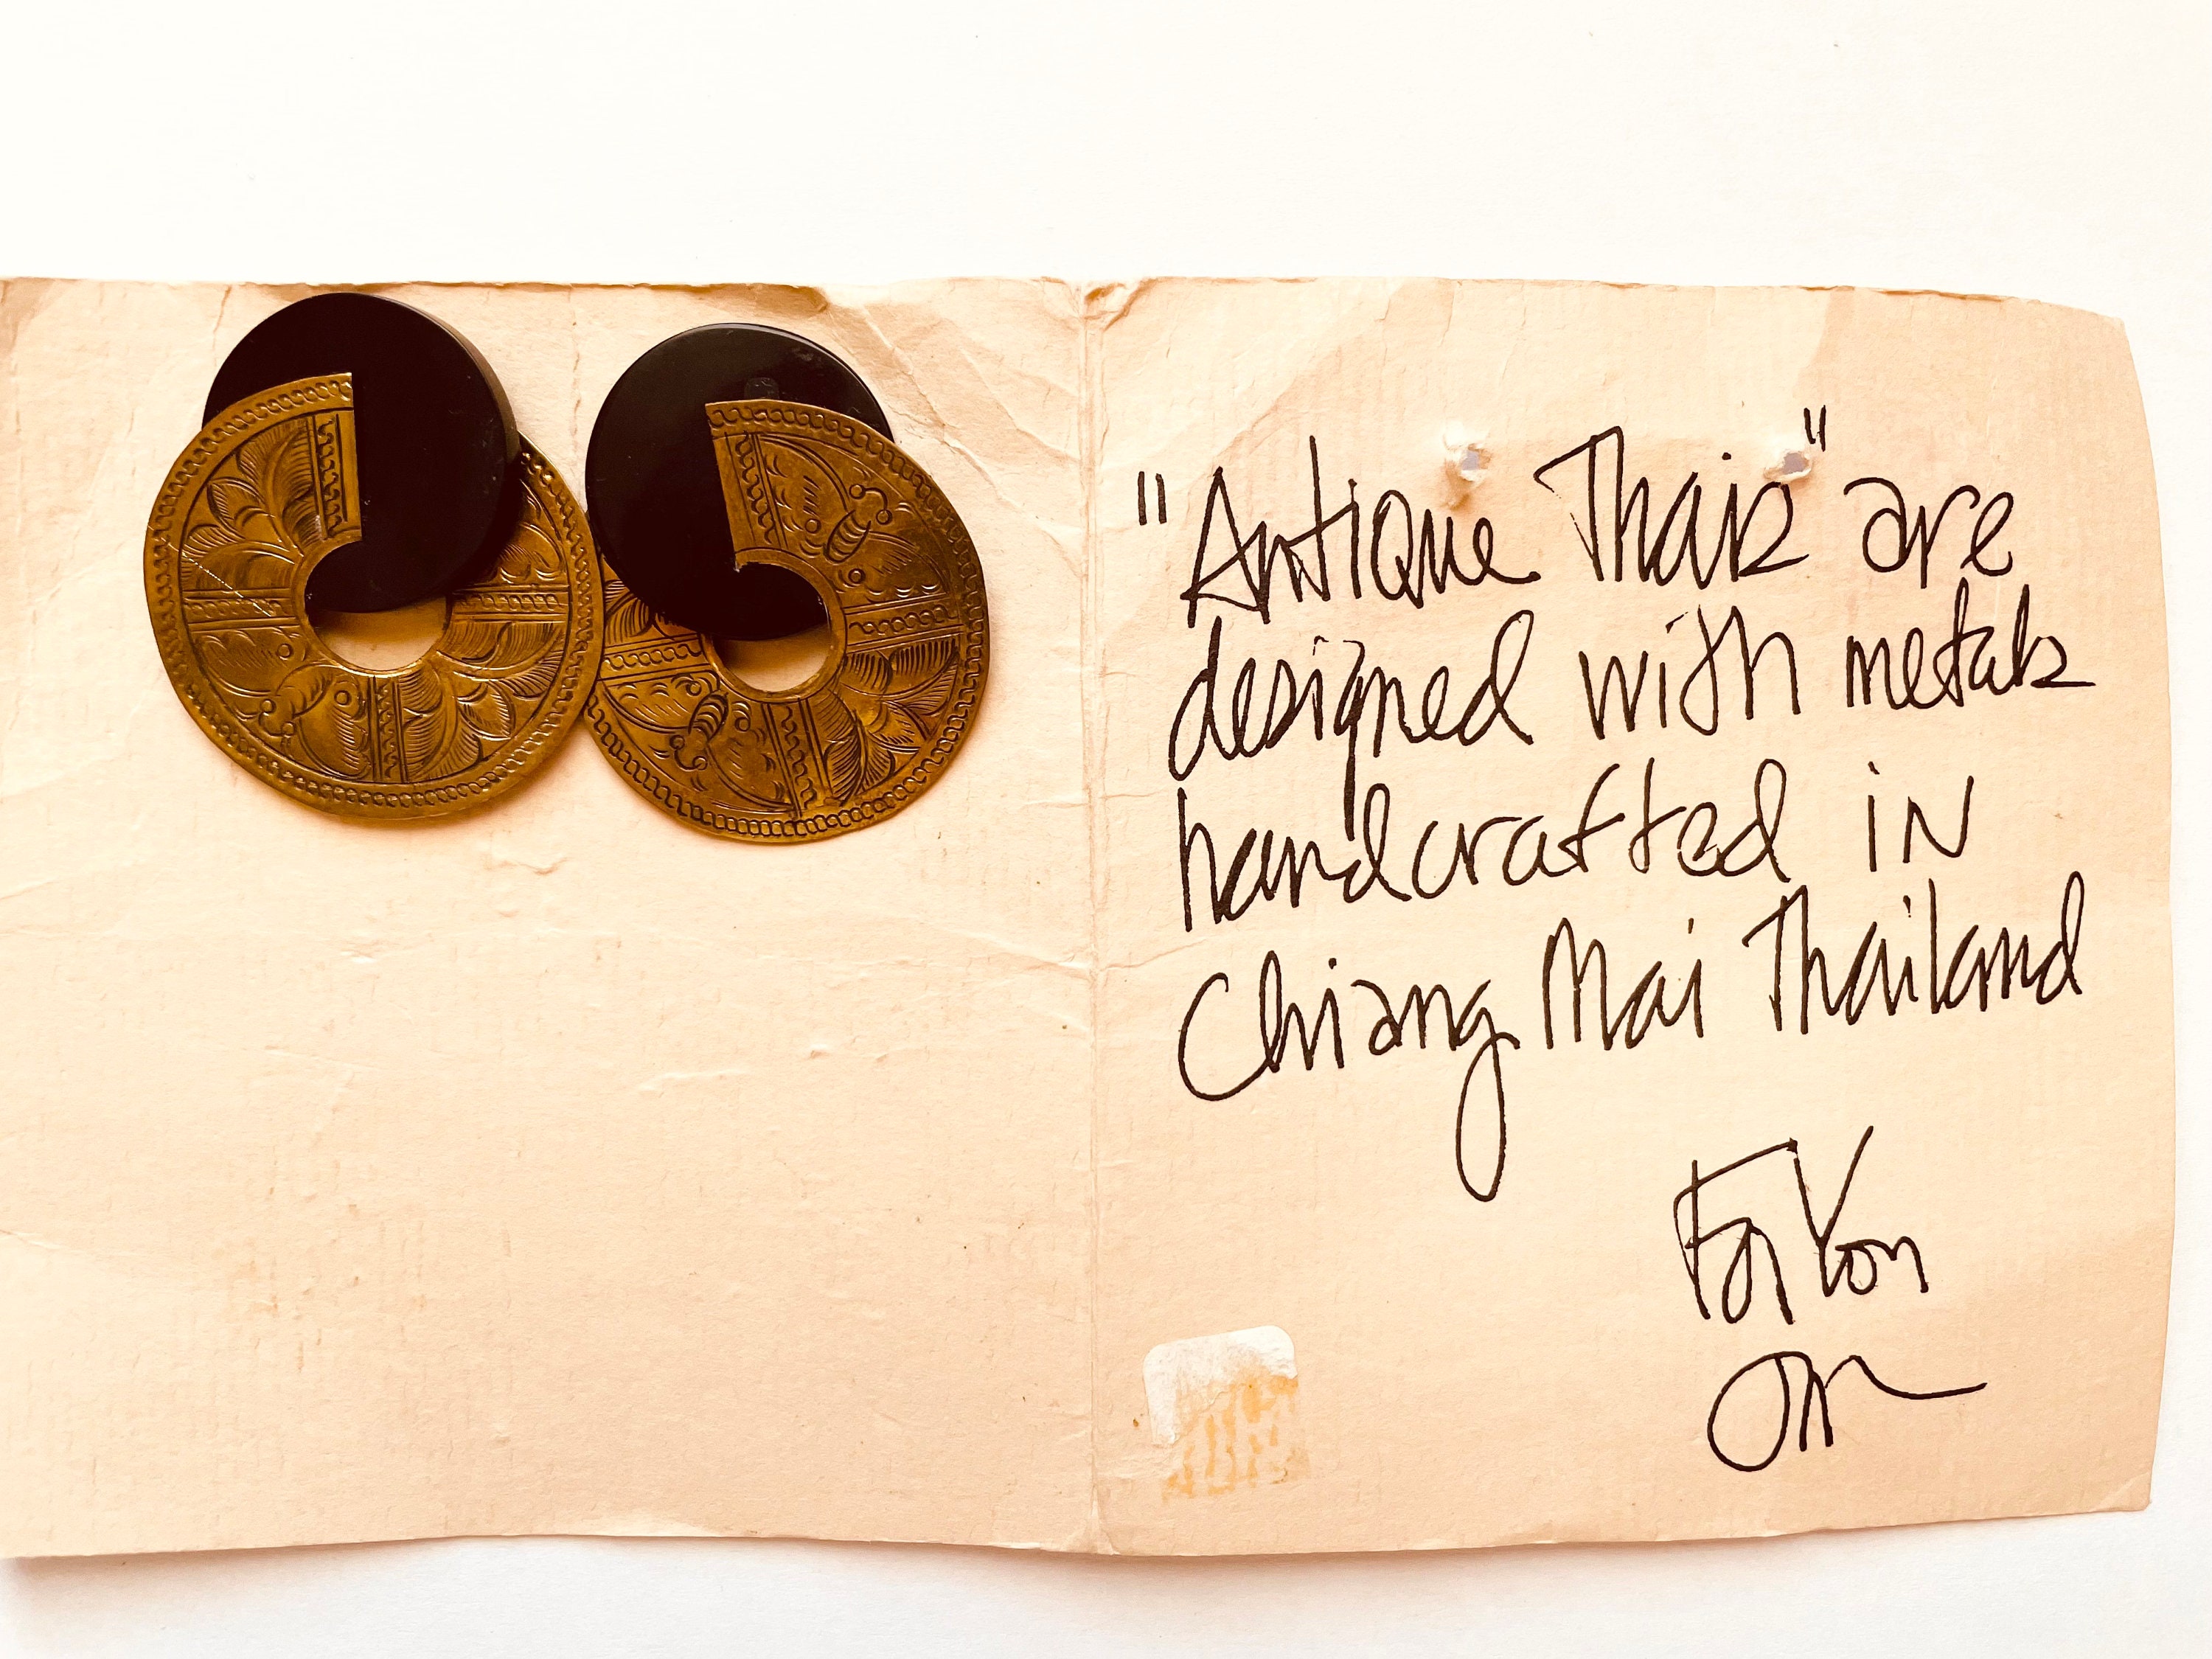 "Antique Thais" are
designed with metals
handcrafted in
Chiang Mai Thailand